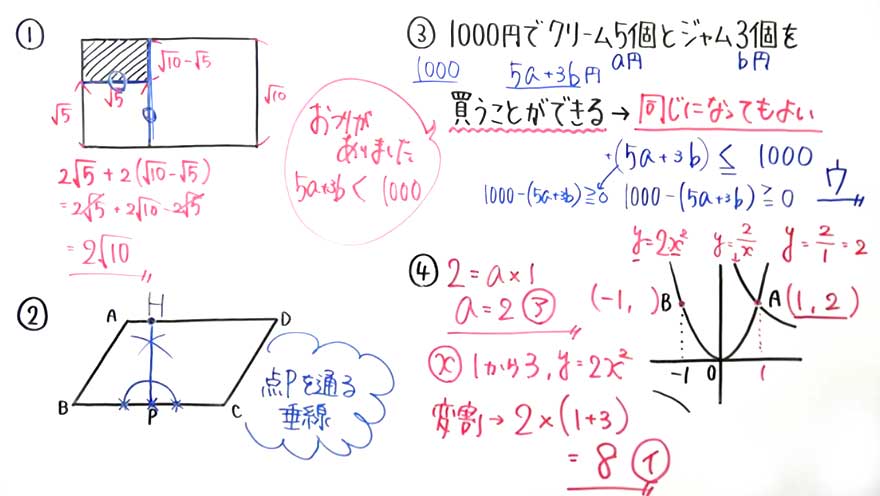 ①
√10-√5
√5
√5
√10
2√5+2(√10-√5)
=2√5+2√10-2√5
=2√10
おつりが
ありました
5a+3b<1000
②
A
H
D
B
P
C
点Pを通る
垂線
③ 1000円でクリーム5個とジャム3個を
1000
5a+3b円
a円
b円
買うことができる→同じになってもよい
(5a+3b)≦1000
1000-(5a+3b)≧0
1000-(5a+3b)≧0
ウ
④
2=a×1
a=2 ③
ⓧ 1から3, y=2x²
変割→2×(1+3)
=8 イ
y=2x²
y=2/x
y=2/1=2
(-1, )B
A(1,2)
-1
0
1